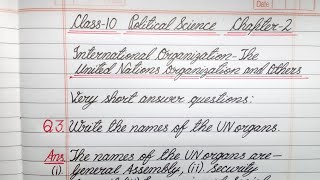 Date
Class-10 Political Science Chapter-2
International Organization-The
United Nations Organization and Others
Very short answer questions:
Q.3. Write the names of the UN organs.
Ans. The names of the UN organs are-
(i). General Assembly, (ii). Security